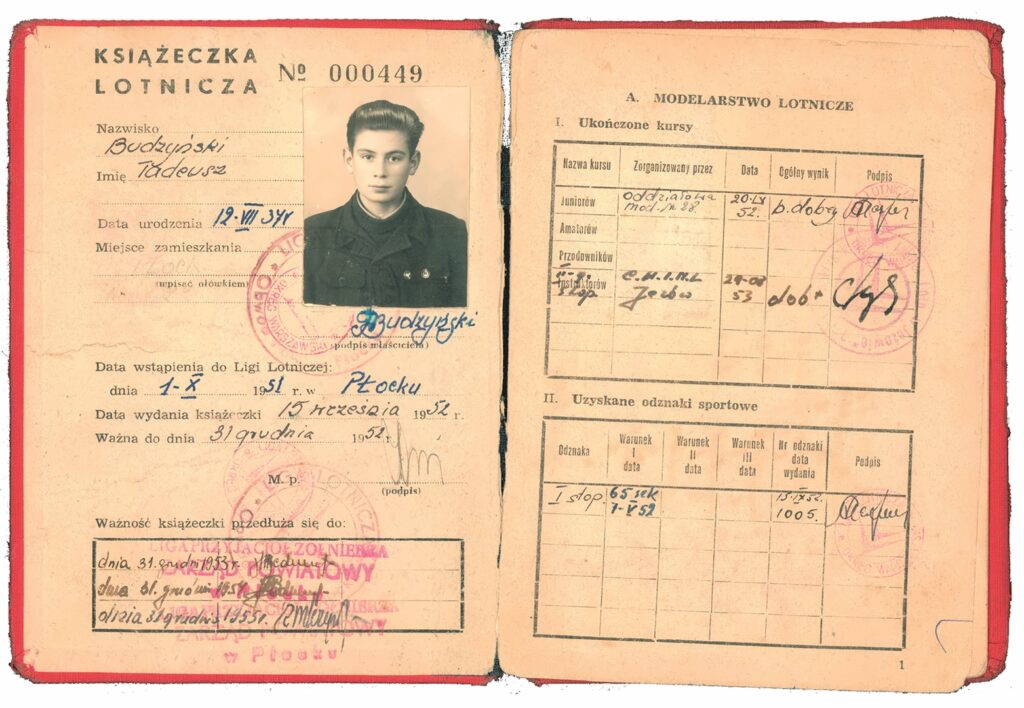 KSIĄŻECZKA
LOTNICZA
Nº 000449
Nazwisko
Budzyński
Imię Tadeusz
Data urodzenia 12-VII 37r
Miejsce zamieszkania
(wpisać ołówkiem)
Budzyński
(podpis właściciela)
Data wstąpienia do Ligi Lotniczej:
dnia 1-X 1951 r. w Płocku
Data wydania książeczki 15 września 1952 r.
Ważna do dnia 31 grudnia 1952 r.
M. p.
(podpis)
Ważność książeczki przedłuża się do:
dnia 31. grudn 1953 r.
dnia 31. grudnia 1954
dnia 31 grudnia 1955 r.
LIGA PRZYJACIÓŁ ŻOŁNIERZA
ZARZĄD POWIATOWY
ZARZĄD POWIATOWY
w Płocku
A. MODELARSTWO LOTNICZE
I. Ukończone kursy
Nazwa kursu Zorganizowany przez Data Ogólny wynik Podpis
Juniorów oddziałowa mod. nr 28 20-IX 52. b. dobry
Amatorów
Przodowników
Instruktorów II-g. stop Jeżów 53 dobr
II. Uzyskane odznaki sportowe
Odznaka Warunek I data Warunek II data Warunek III data Nr odznaki data wydania Podpis
I stop. 65 sek 1-V 52 15.IX 52. 1005.
1